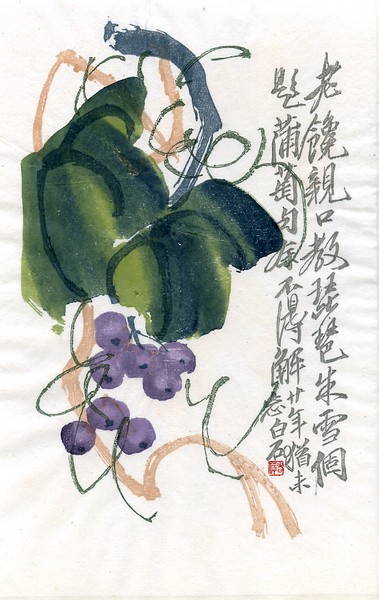 老饞親口教琵琶朱雪個
題蒲萄句余不得解
廿年猶未
忘白石